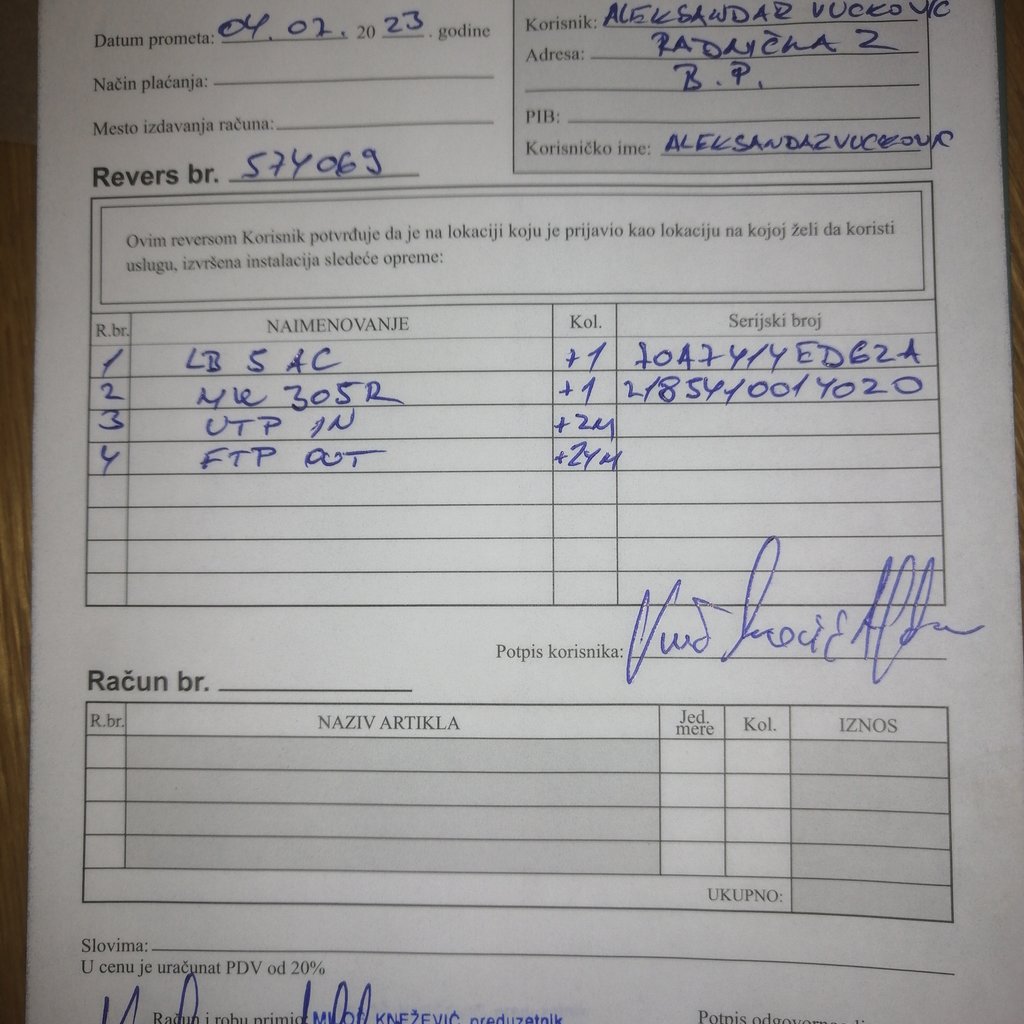 Datum prometa: 04. 02. 20 23. godine
Način plaćanja:
Mesto izdavanja računa:
Korisnik: ALEKSANDAR VUCKOVIC
Adresa: RADNIČKA 2
B.P.
PIB:
Korisničko ime: ALEKSANDARVUCKOVIC
Revers br. 574069
Ovim reversom Korisnik potvrđuje da je na lokaciji koju je prijavio kao lokaciju na kojoj želi da koristi
uslugu, izvršena instalacija sledeće opreme:
R.br. NAIMENOVANJE Kol. Serijski broj
1 LB 5 AC +1 70A7414ED62A
2 MK 305R +1 2185410014020
3 UTP IN +2M
4 FTP OUT +24M
Potpis korisnika:
Račun br.
R.br. NAZIV ARTIKLA Jed. mere Kol. IZNOS
UKUPNO:
Slovima:
U cenu je uračunat PDV od 20%
Račun i robu primio KNEŽEVIĆ preduzetnik
Potpis odgovornog